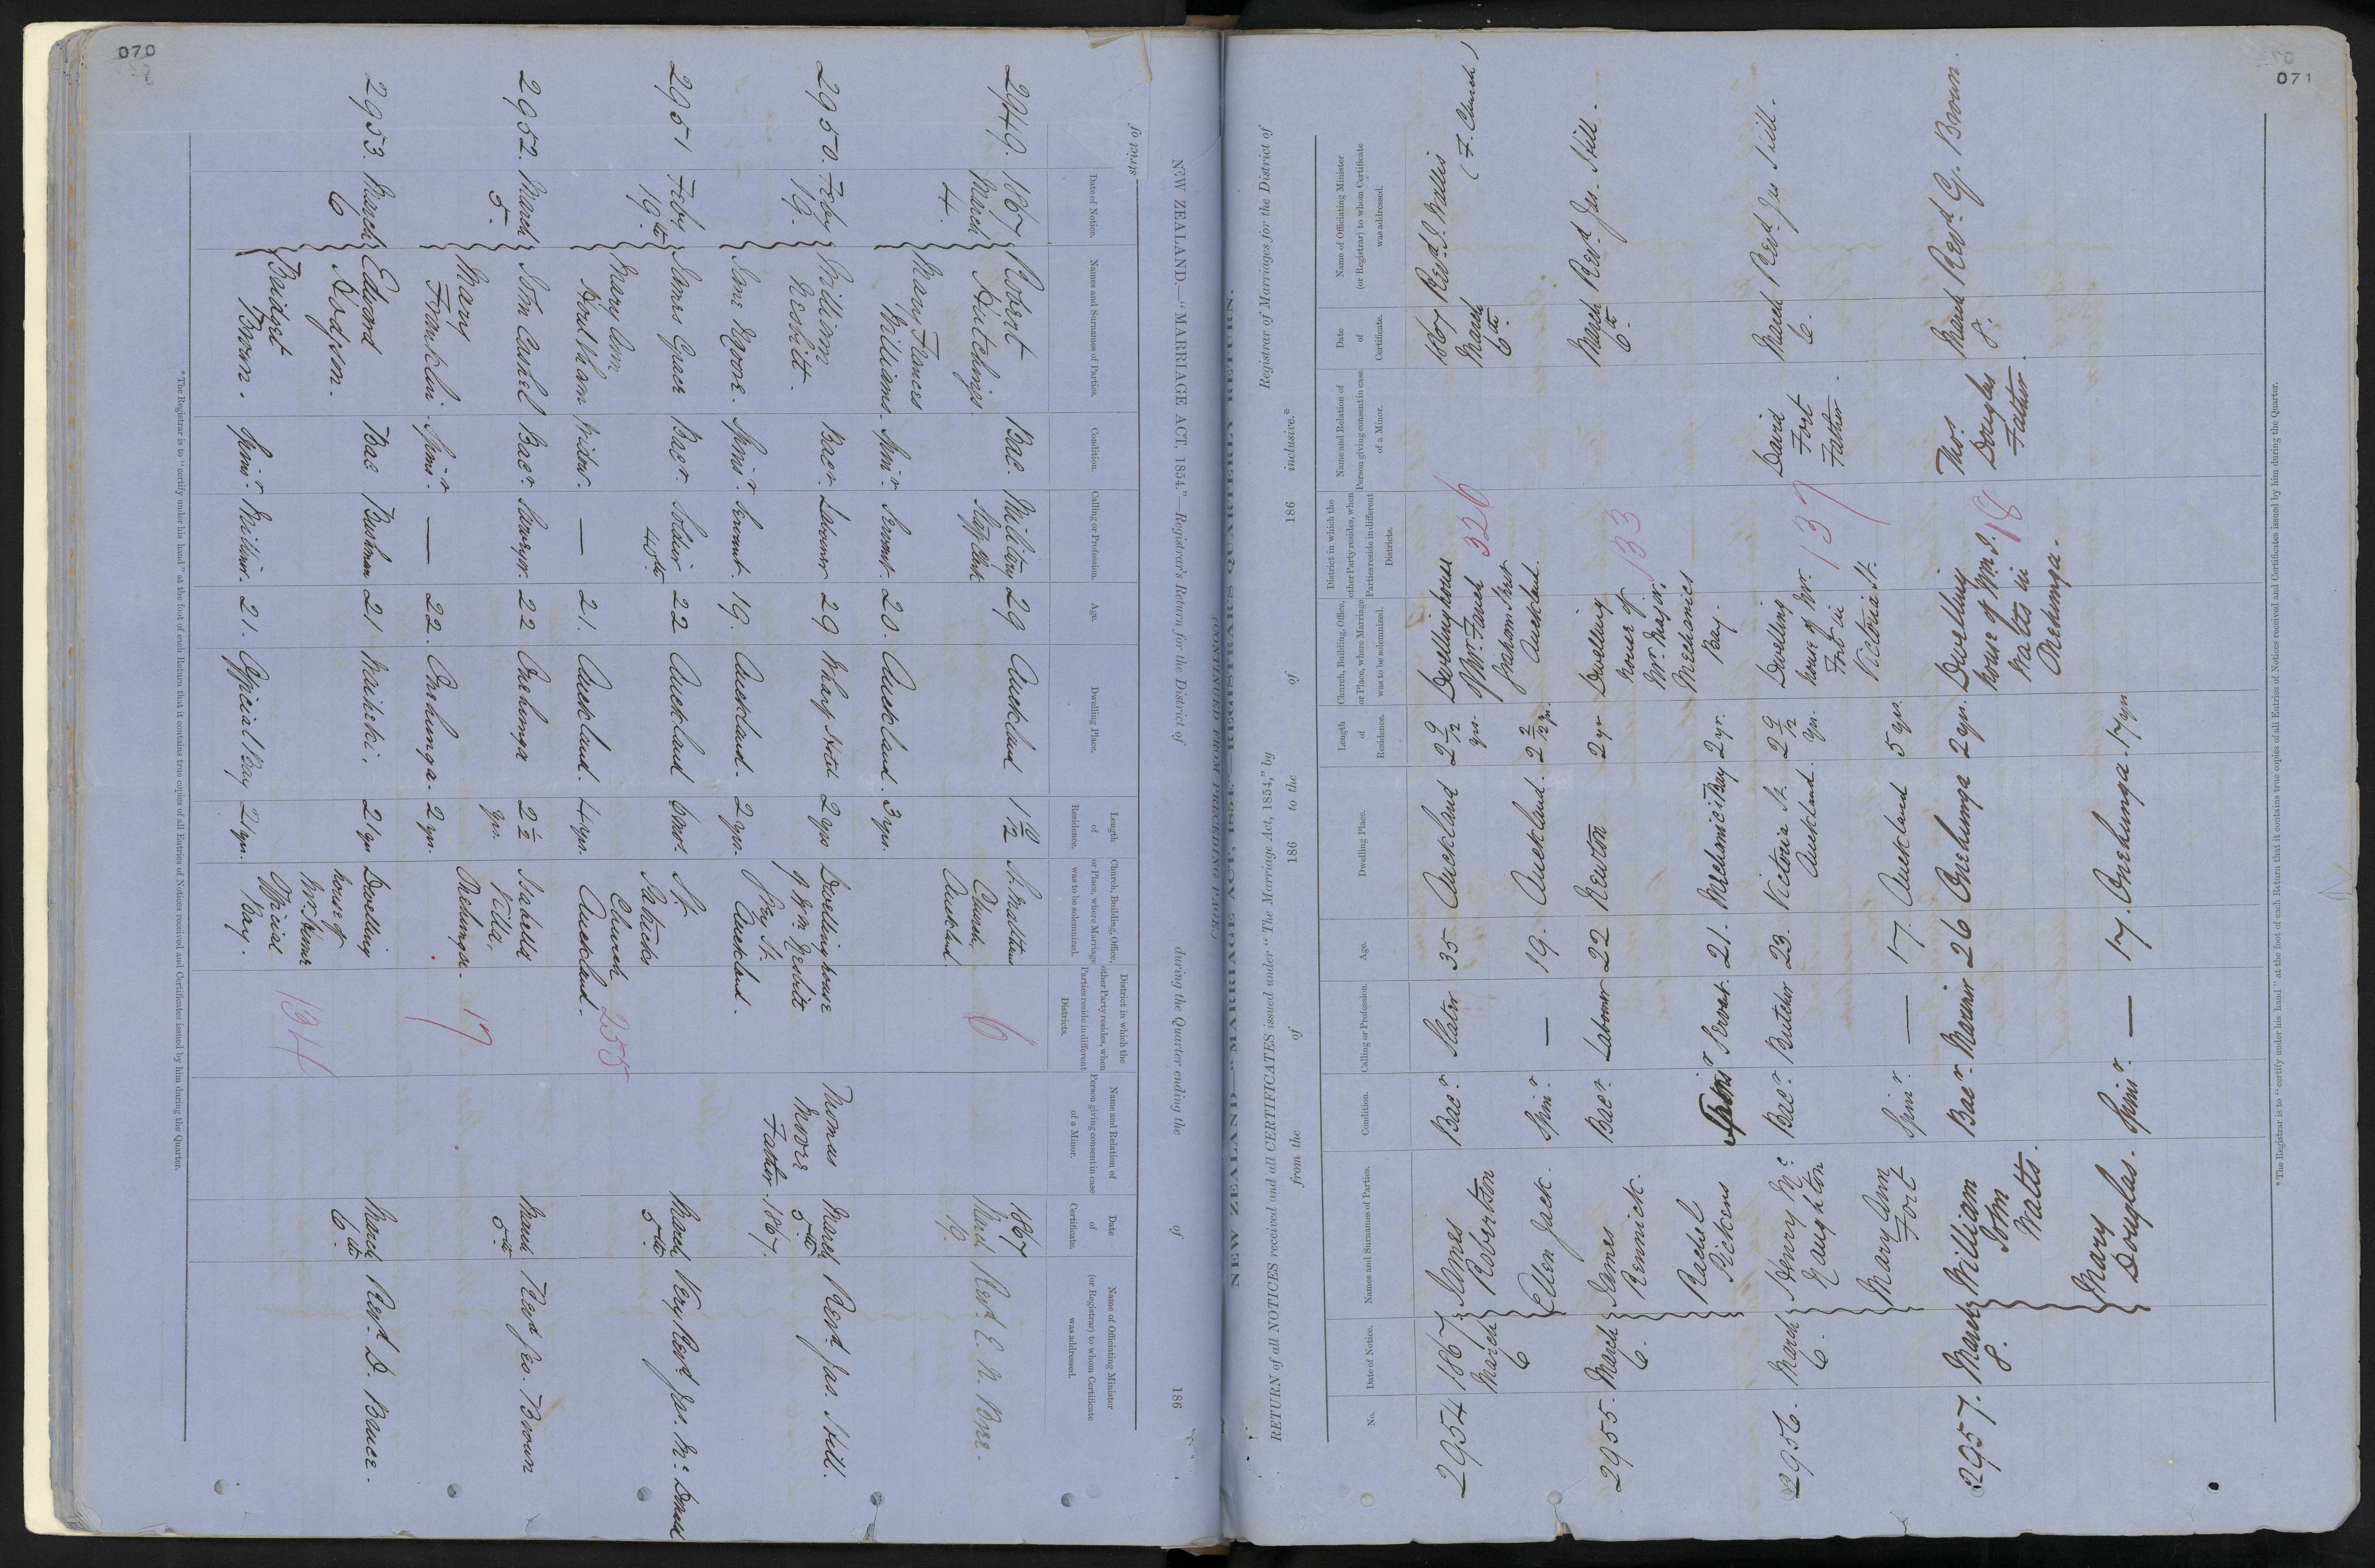 070
NEW ZEALAND.—"MARRIAGE ACT, 1854."—Registrar's Return for the District of during the Quarter ending the of 186
Date of Notice.
Names and Surnames of Parties.
Condition.
Calling or Profession.
Age.
Dwelling Place.
Length of Residence.
Church, Building, Office, or Place, where Marriage was to be solemnized.
District in which the other Party resides, when Parties reside in different Districts.
Name and Relation of Person giving consent in case of a Minor.
Date of Certificate.
Name of Officiating Minister (or Registrar) to whom Certificate was addressed.
2949. 1867 Robert Bac. Military 29 Auckland 1 9/12 St. Matthew 1867
March Hutchings. Staff Clerk Church, 6 March Revd. E. N. Bree.
4. Auckland. 19.
Mary Frances
Williams. Spinr. Servant. 20. Auckland. 3 yrs.
2950. Feby William Bacr. Labourer 29 Wharf Hotel 2 yrs Dwelling house Thomas March Revd. Jas. Hill.
19. Nesbitt. of Wm Nesbitt Moore 5th
Grey St. Father. 1867.
Jane Moore. Spinr. Servant. 19. Auckland. 2 yrs. Auckland.
2951 Feby James Grace Bacr. Soldier 22 Auckland 6 mos. St. March Very Revd. Jas. Mc. Donald
19th 40th Patricks 5th
Mary Ann Church 255
Houltham Widow. — 21. Auckland. 4 yrs. Auckland.
2952. March John Cashel Bacr. Sawyer. 22 Onehunga 2 1/2 Isabella March Revd Geo. Brown
5. yrs. Villa, 5th
Mary Onehunga. 17
Franklin. Spinr. — 22. Onehunga. 2 yrs.
2953. March Edward Bac Bushman 21 Waiheki. 21 yrs Dwelling March Revd. D. Bruce.
6 Hodgson. house of 6th
Bridget Official 134
Brown. Spinr. Milliner. 21. Official Bay 21 yrs. Bay.
*The Registrar is to "certify under his hand" at the foot of each Return that it contains true copies of all Entries of Notices received and Certificates issued by him during the Quarter.
071
NEW ZEALAND "MARRIAGE ACT, 1854."—REGISTRAR'S QUARTERLY RETURN.
(CONTINUED FROM PRECEDING PAGE.)
RETURN of all NOTICES received and all CERTIFICATES issued under "The Marriage Act, 1854," by Registrar of Marriages for the District of
from the of 186 to the of 186 inclusive.*
No.
Date of Notice.
Names and Surnames of Parties.
Condition.
Calling or Profession.
Age.
Dwelling Place.
Length of Residence.
Church, Building, Office, or Place, where Marriage was to be solemnized.
District in which the other Party resides, when Parties reside in different Districts.
Name and Relation of Person giving consent in case of a Minor.
Date of Certificate.
Name of Officiating Minister (or Registrar) to whom Certificate was addressed.
2954 1867 James Bacr. Slater 35 Auckland 2 9/12 Dwelling house 1867 Revd. J. Wallis
March Robertson yrs. 326 March (F. Church)
6 Graham Street 6th
Ellen Jack. Spinr. — 19. Auckland. 2 2/12 yr. Auckland.
2955. March James Bacr. Labourer 22 Newton 2 yrs Dwelling March Revd. Jas. Hill.
6. Rennick. house of 133 6th
Mr. Major,
Rachel Mechanics
Pickens Spinr Servat. 21. Mechanics Bay 2 yr. Bay.
2956. March Henry Mc Bacr. Butcher 23. Victoria St. 2 9/12 Dwelling David March Revd Jas Hill.
6. Naughton Auckland. yrs. house of Mr. 137 Fort 6.
Fort in Father.
Mary Ann Victoria St.
Fort Spinr. — 17. Auckland 5 yrs.
2957. March William Bacr. Mariner 26 Onehunga 2 yrs. Dwelling Thos. March Revd. G. Brown.
8. John house of Wm. J. 18 Douglas 8.
Watts. Watts in Father.
Onehunga.
Mary
Douglas. Spinr. — 17. Onehunga. 17 yrs
*The Registrar is to "certify under his hand" at the foot of each Return that it contains true copies of all Entries of Notices received and Certificates issued by him during the Quarter.